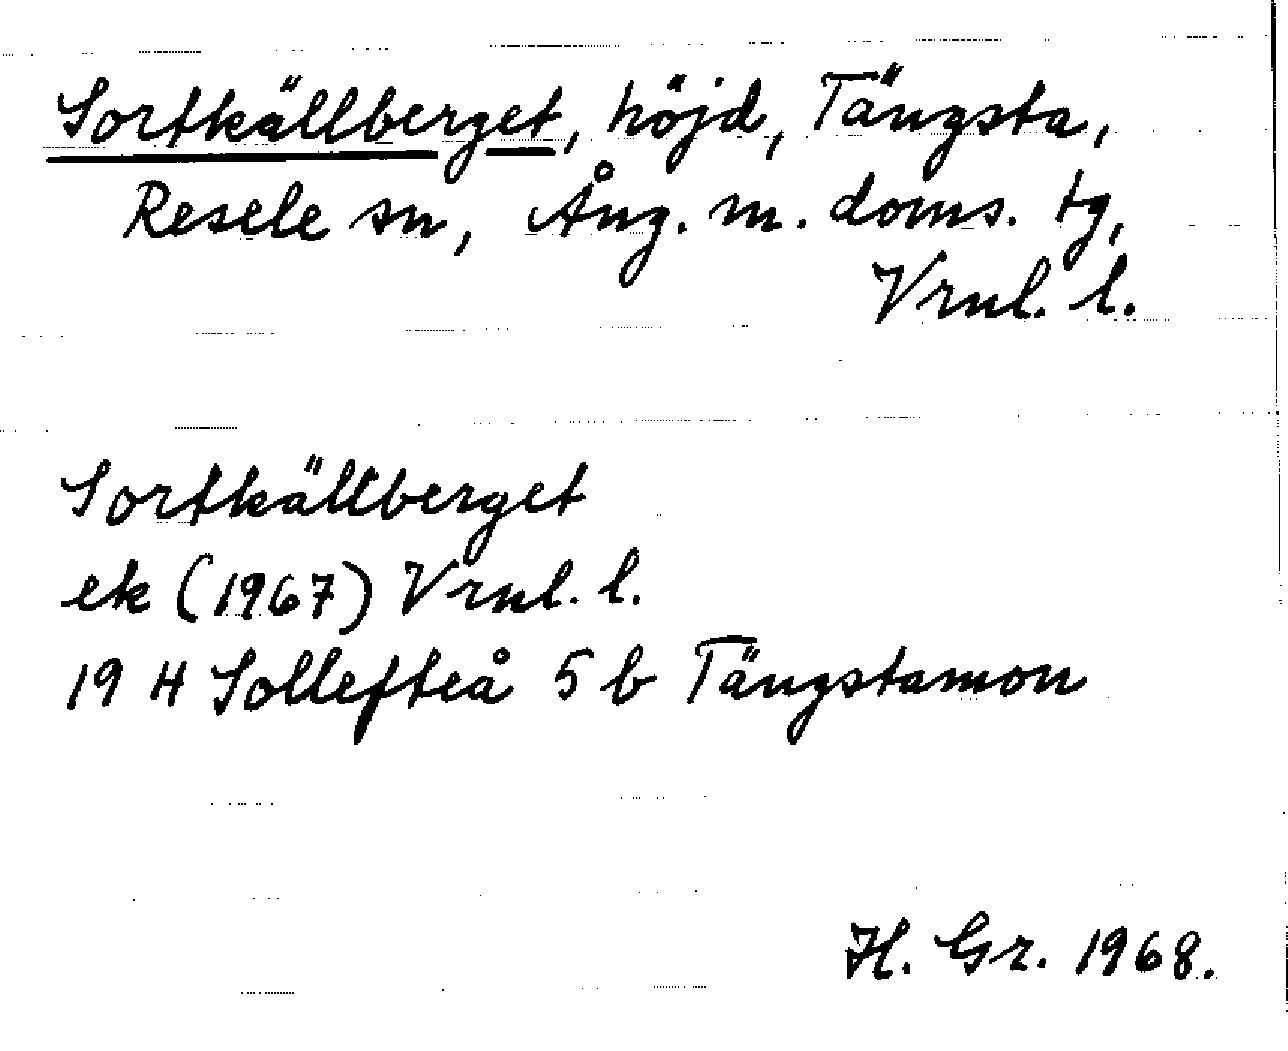 Sortkällberget, höjd, Tängsta,
Resele sn, Ång. m. doms. tg,
Vrnl. l.
Sortkällberget
ek (1967) Vrnl. l.
19 H Sollefteå 5 b Tängstamon
H. Gr. 1968.